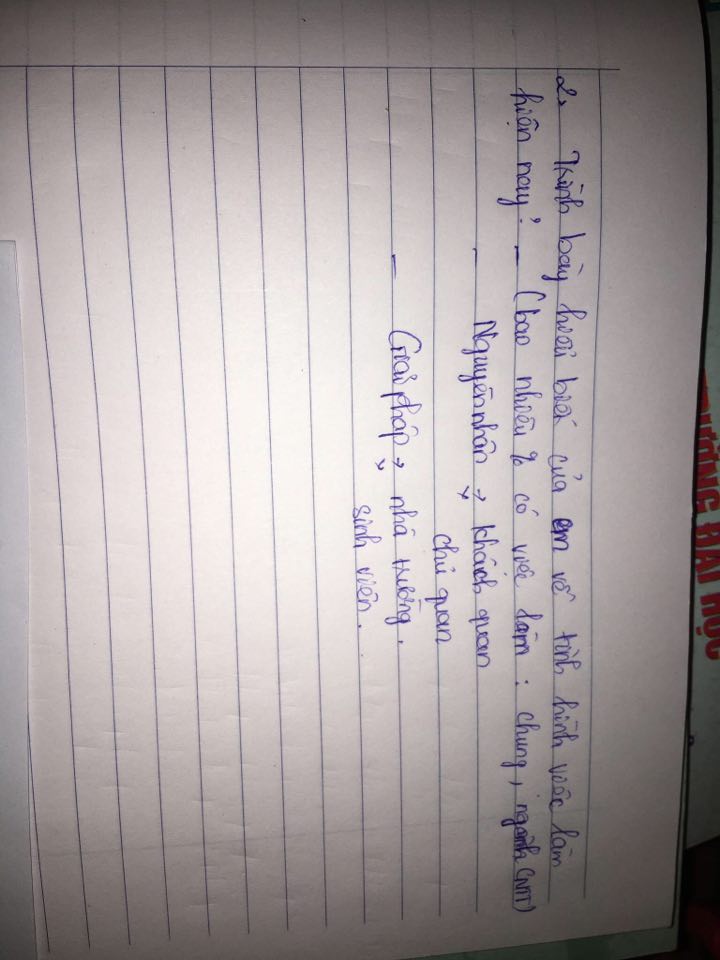 TRƯỜNG ĐẠI HỌC
2. Trình bày hiểu biết của em về tình hình việc làm
hiện nay? - (bao nhiêu % có việc làm : chung, ngành CNTT)
- Nguyên nhân → khách quan
chủ quan
- Giải pháp → nhà trường.
sinh viên.